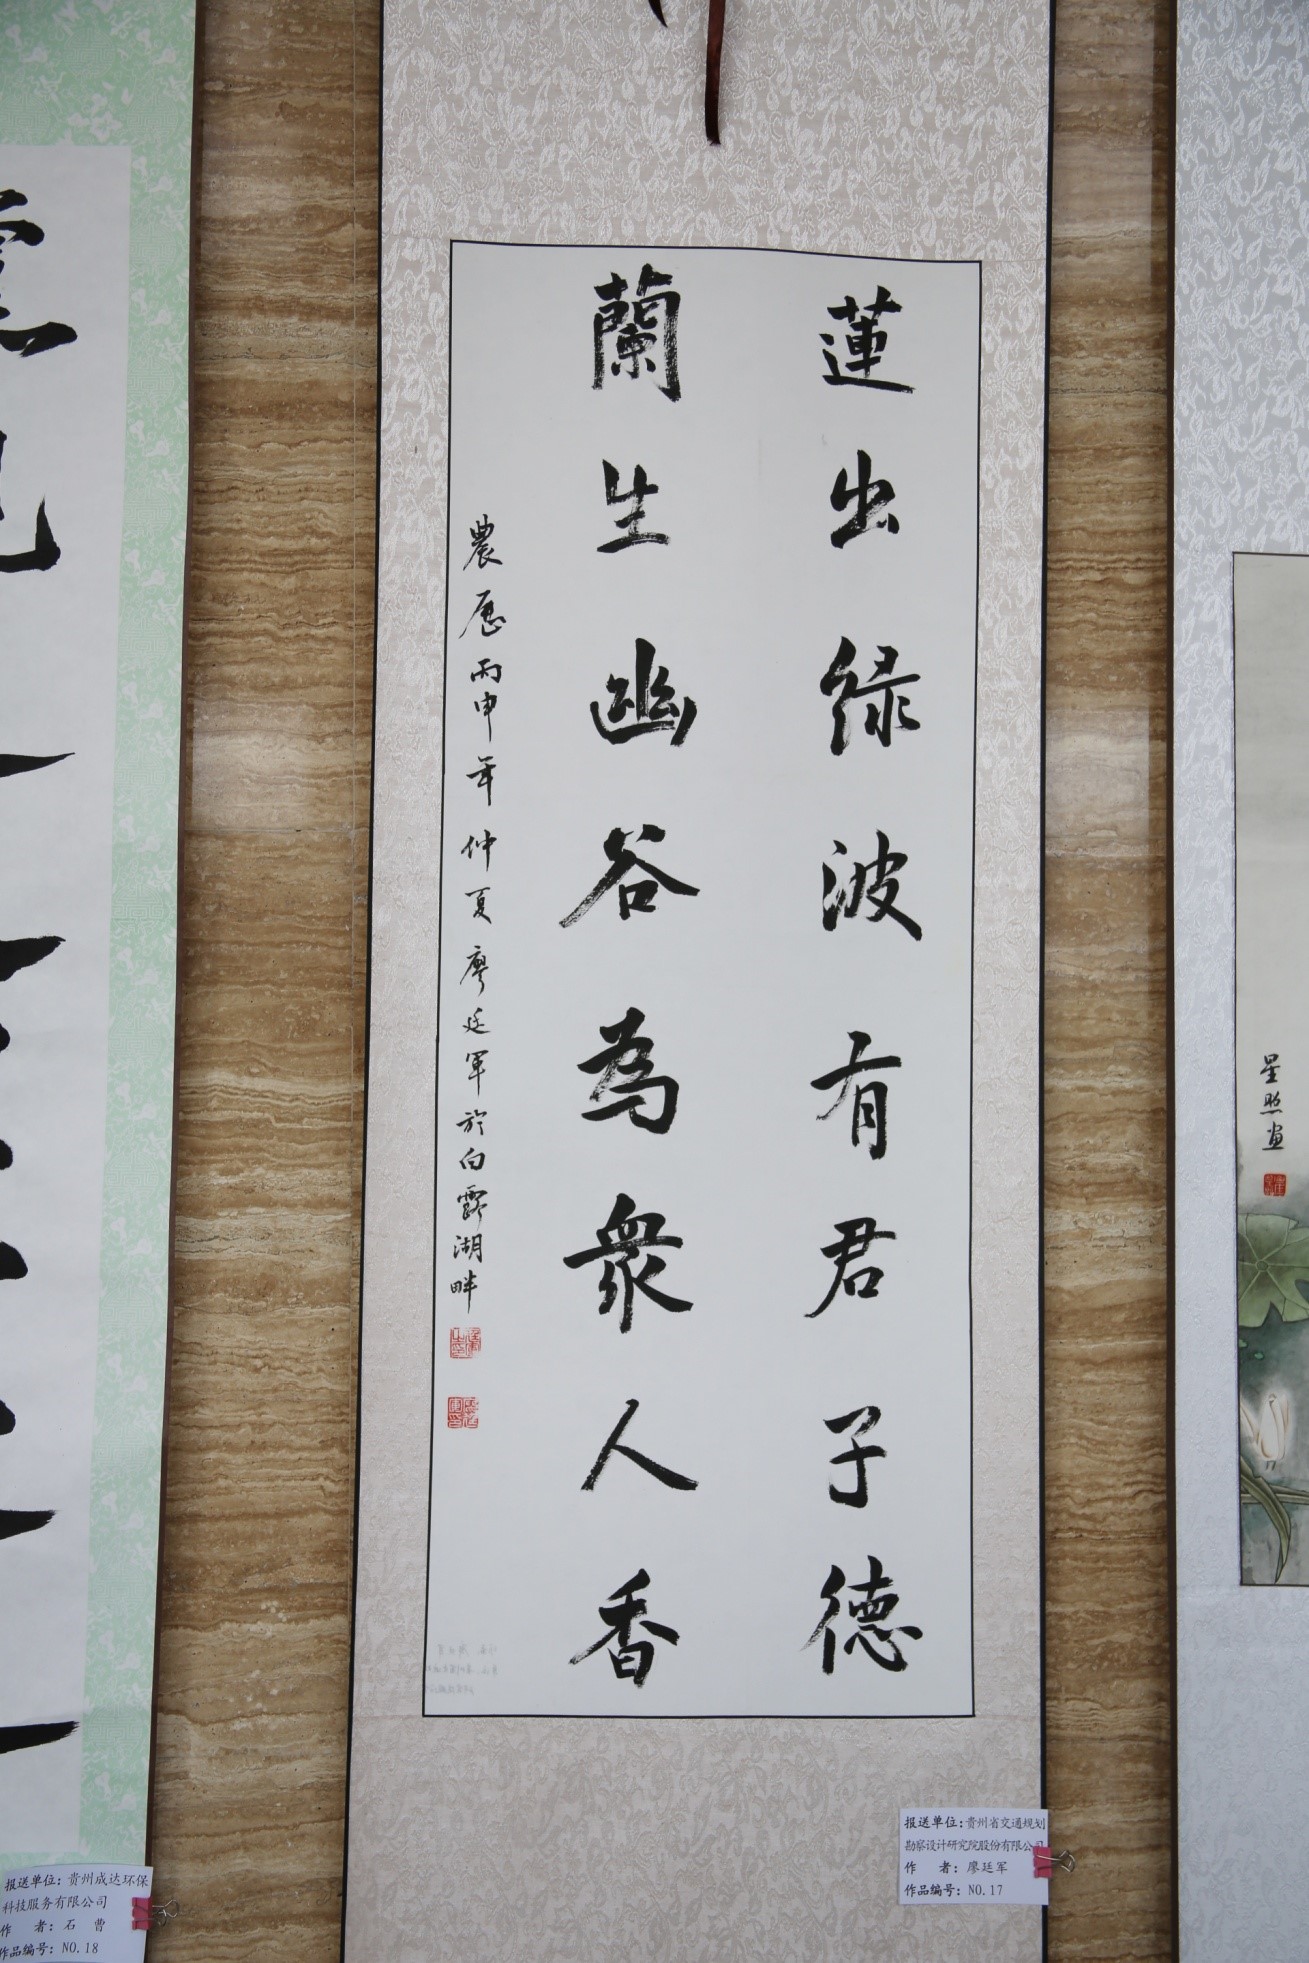 蓮出緑波有君子德
蘭生幽谷為衆人香
農歷丙申年仲夏廖廷軍於白露湖畔
星照画
报送单位：贵州省交通规划
勘察设计研究院股份有限公司
作 者：廖廷军
作品编号：NO.17
报送单位：贵州成达环保
科技服务有限公司
作 者：石 曹
作品编号：NO.18